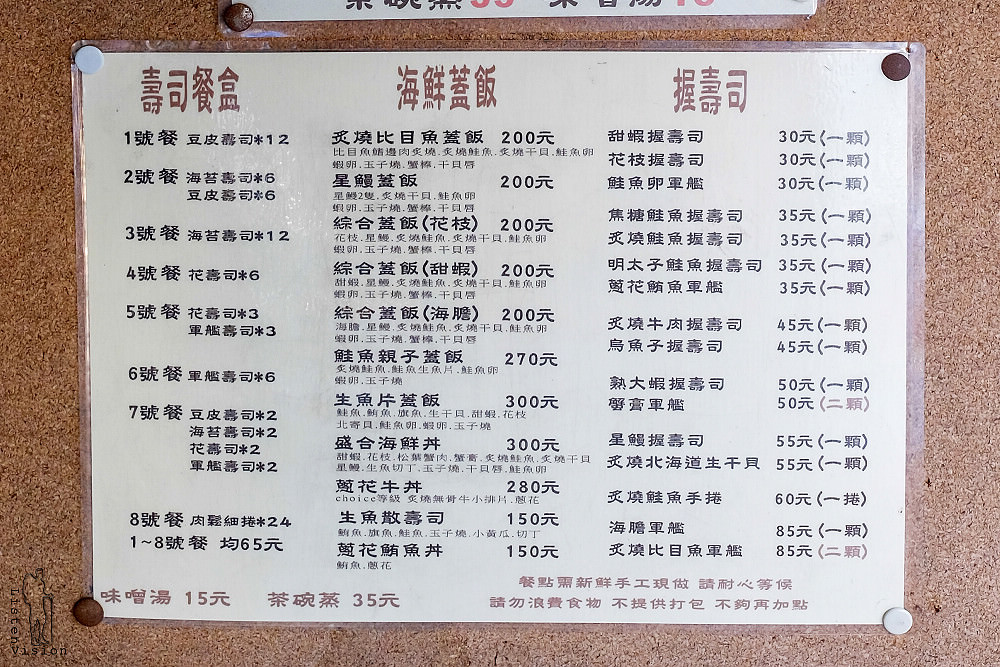 茶碗蒸35 味噌湯15
壽司餐盒
1號餐 豆皮壽司*12
2號餐 海苔壽司*6
豆皮壽司*6
3號餐 海苔壽司*12
4號餐 花壽司*6
5號餐 花壽司*3
軍艦壽司*3
6號餐 軍艦壽司*6
7號餐 豆皮壽司*2
海苔壽司*2
花壽司*2
軍艦壽司*2
8號餐 肉鬆細捲*24
1~8號餐 均65元
海鮮蓋飯
炙燒比目魚蓋飯 200元
比目魚鰭邊肉炙燒.炙燒鮭魚.炙燒干貝.鮭魚卵
蝦卵.玉子燒.蟹棒.干貝唇
星鰻蓋飯 200元
星鰻2隻.炙燒干貝.鮭魚卵
蝦卵.玉子燒.蟹棒.干貝唇
綜合蓋飯(花枝) 200元
花枝.星鰻.炙燒鮭魚.炙燒干貝.鮭魚卵
蝦卵.玉子燒.蟹棒.干貝唇
綜合蓋飯(甜蝦) 200元
甜蝦.星鰻.炙燒鮭魚.炙燒干貝.鮭魚卵
蝦卵.玉子燒.蟹棒.干貝唇
綜合蓋飯(海膽) 200元
海膽.星鰻.炙燒鮭魚.炙燒干貝.鮭魚卵
蝦卵.玉子燒.蟹棒.干貝唇
鮭魚親子蓋飯 270元
炙燒鮭魚.鮭魚生魚片.鮭魚卵
蝦卵.玉子燒
生魚片蓋飯 300元
鮭魚.鮪魚.旗魚.生干貝.甜蝦.花枝
北寄貝.鮭魚卵.蝦卵.玉子燒
盛合海鮮丼 300元
甜蝦.花枝.松葉蟹肉.蟹膏.炙燒鮭魚.炙燒干貝
星鰻.生魚切丁.玉子燒.干貝唇.鮭魚卵
蔥花牛丼 280元
choice等級 炙燒無骨牛小排片.蔥花
生魚散壽司 150元
鮪魚.旗魚.鮭魚.玉子燒.小黃瓜.切丁
蔥花鮪魚丼 150元
鮪魚.蔥花
握壽司
甜蝦握壽司 30元(一顆)
花枝握壽司 30元(一顆)
鮭魚卵軍艦 30元(一顆)
焦糖鮭魚握壽司 35元(一顆)
炙燒鮭魚握壽司 35元(一顆)
明太子鮭魚握壽司 35元(一顆)
蔥花鮪魚軍艦 35元(一顆)
炙燒牛肉握壽司 45元(一顆)
烏魚子握壽司 45元(一顆)
熟大蝦握壽司 50元(一顆)
蟹膏軍艦 50元(二顆)
星鰻握壽司 55元(一顆)
炙燒北海道生干貝 55元(一顆)
炙燒鮭魚手捲 60元(一捲)
海膽軍艦 85元(一顆)
炙燒比目魚軍艦 85元(二顆)
味噌湯 15元 茶碗蒸 35元
餐點需新鮮手工現做 請耐心等候
請勿浪費食物 不提供打包 不夠再加點
Listen
Vision